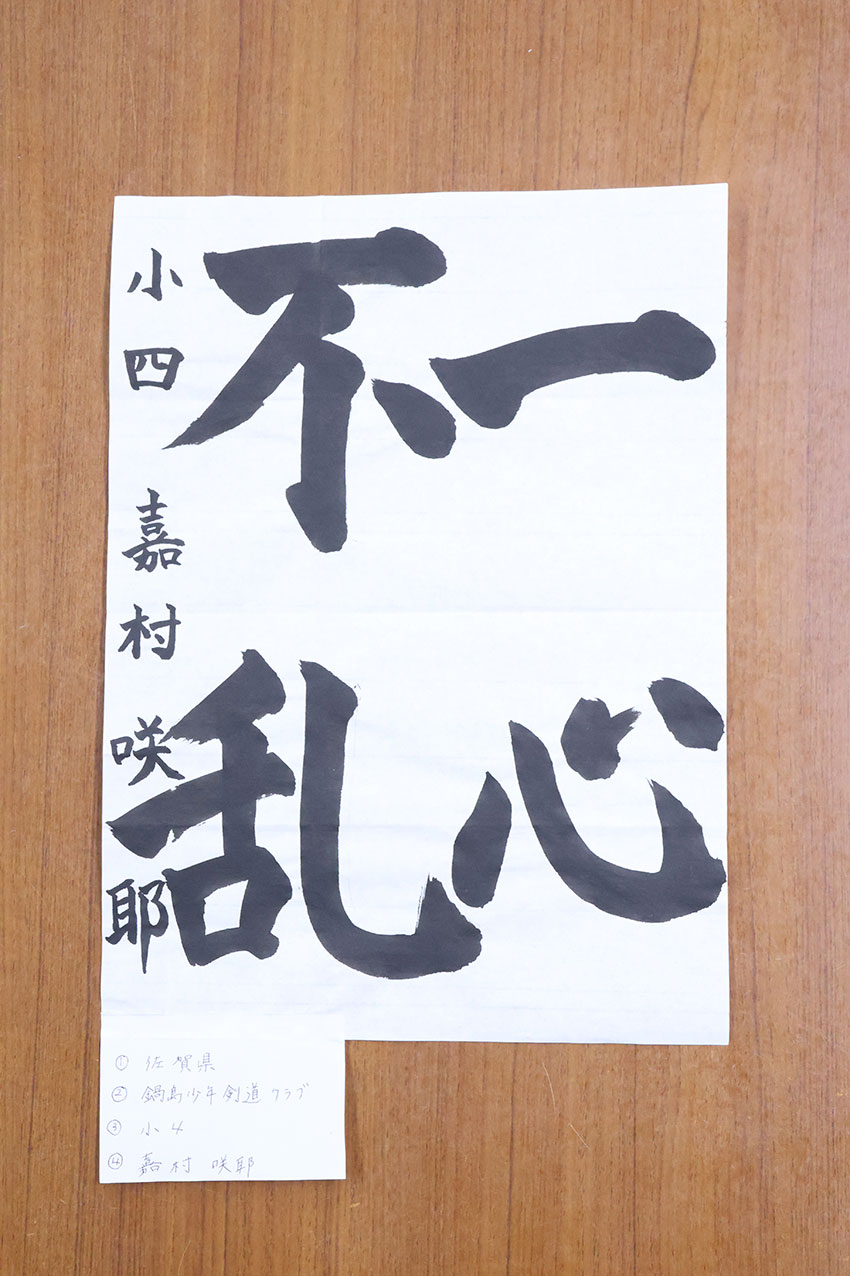 一心
不乱
小四 嘉村 咲耶
① 佐賀県
② 鍋島少年剣道クラブ
③ 小4
④ 嘉村 咲耶